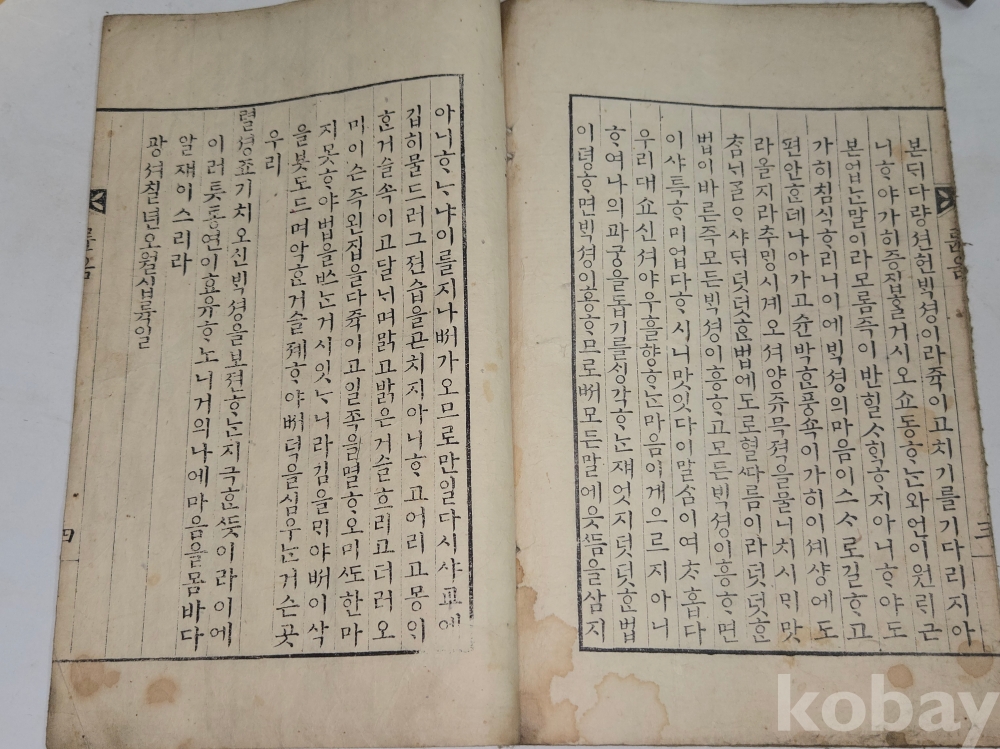 본ᄃᆡ다량션ᄒᆞᆫᄇᆡᆨ셩이라쥭이고치기를기다리지아
니ᄒᆞ야가히증질볼거시오쇼동ᄒᆞᄂᆞᆫ와언이원ᄅᆡ근
본업ᄂᆞᆫ말이라모름즉이반힐ᄉᆞ힉ᄒᆞ지아니ᄒᆞ야도
가히침식ᄒᆞ리니이에ᄇᆡᆨ셩의마음이스ᄉᆞ로길ᄒᆞ고
편안ᄒᆞᆫ데나아가고슌박ᄒᆞᆫ풍쇽이가히이셰샹에도
라올지라추밍시계오셔양쥬무젹을물니치시ᄆᆡ맛
ᄎᆞᆷᄂᆡᄀᆞᆯᄋᆞ샤ᄃᆡ덧덧ᄒᆞᆫ법에도로혈ᄯᆞ름이라덧덧ᄒᆞᆫ
법이바른즉모든ᄇᆡᆨ셩이흥ᄒᆞ고모든ᄇᆡᆨ셩이흥ᄒᆞ면
이샤특ᄒᆞ미업다ᄒᆞ시니맛잇다이말ᄉᆞᆷ이여ᄎᆞ홉다
우리대쇼신셔야우흘향ᄒᆞᄂᆞᆫ마음이게으르지아니
ᄒᆞ여나의파궁을돕기를ᄉᆡᆼ각ᄒᆞᄂᆞᆫ쟤엇지덧덧ᄒᆞᆫ법
이령ᄒᆞ면ᄇᆡᆨ셩이흥ᄒᆞ므로ᄡᅥ모든말에웃듬을삼지
륜음
三
아니ᄒᆞᄂᆞ냐이를지나ᄡᅥ가오므로만일다시샤교에
깁히물드러그젼습을곤치지아니ᄒᆞ고어리고몽ᄆᆡ
ᄒᆞᆫ거슬속이고달ᄂᆡ며맑고밝은거슬흐리고더러오
미이슨즉왼집을다쥭이고일족을멸ᄒᆞ오미ᄯᅩ한마
지못ᄒᆞ야법을쓰ᄂᆞᆫ거시잇ᄂᆞ니라김을ᄆᆡ야ᄡᅥ이삭
을븟도드며악ᄒᆞᆫ거슬졔ᄒᆞ야ᄡᅥ덕을심우ᄂᆞᆫ거슨곳
우리
렬셩죠기치오신ᄇᆡᆨ셩을보젼ᄒᆞᄂᆞᆫ지극ᄒᆞᆫᄯᅳᆺ이라이에
이러틋동연이효유ᄒᆞ노니거의나에마음을몸바다
알쟤이스리라
광셔칠년오월십륙일
륜음
四
kobay